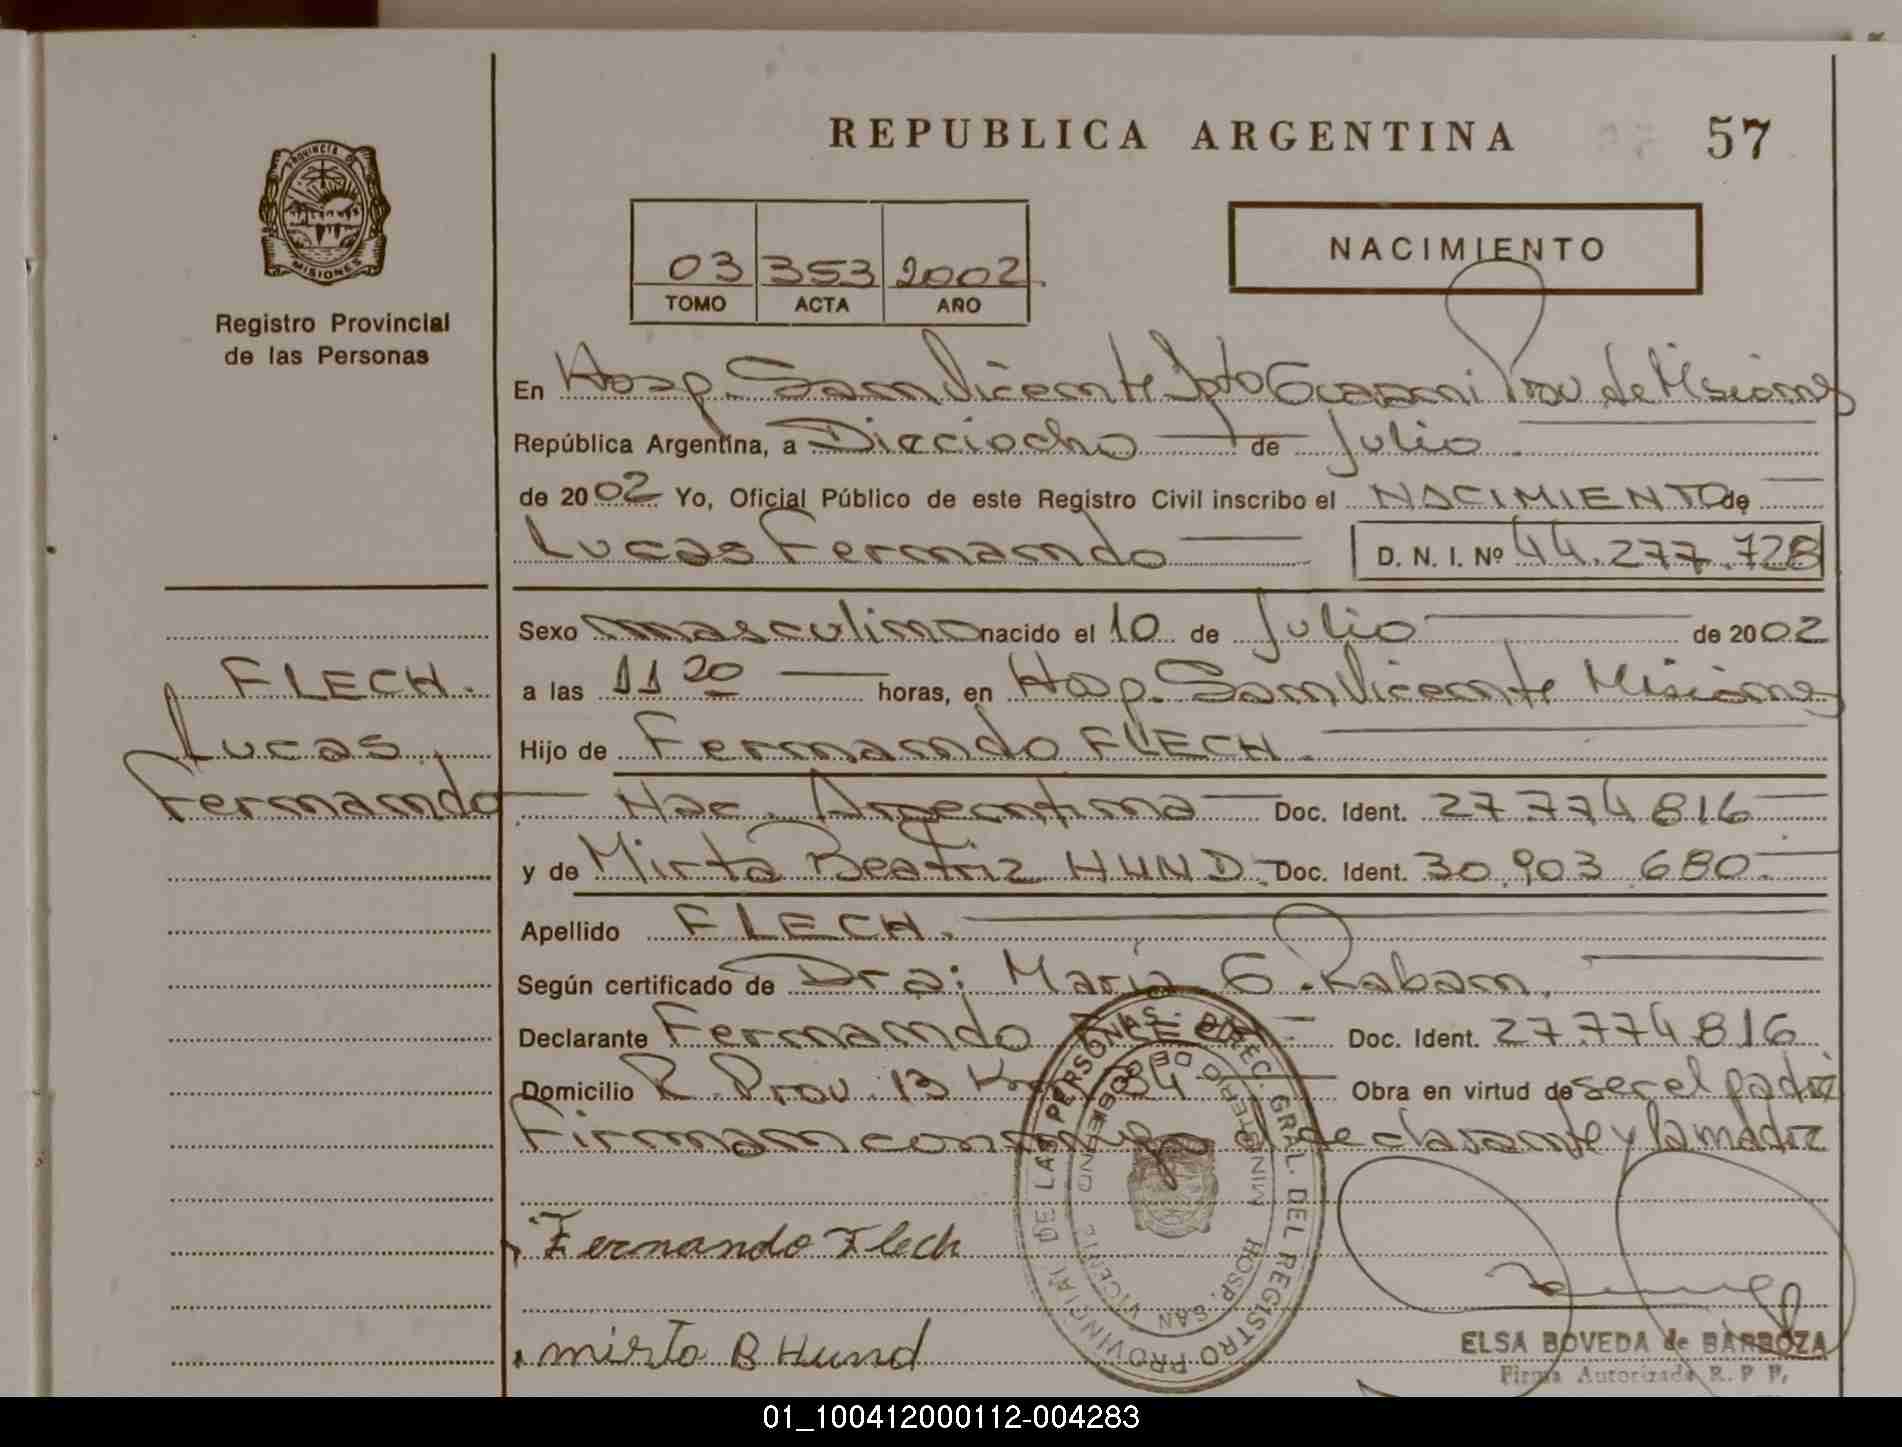 REPUBLICA ARGENTINA 57
PROVINCIA DE
MISIONES
Registro Provincial
de las Personas
03 353 2002
TOMO ACTA AÑO
NACIMIENTO
En Hosp. San Vicente Dpto Guarani Prov de Misiones
República Argentina, a Dieciocho de Julio
de 2002 Yo, Oficial Público de este Registro Civil inscribo el NACIMIENTO de
Lucas Fernando D. N. I. Nº 44.277.728
Sexo masculino nacido el 10 de Julio de 2002
FLECH. a las 11 20 horas, en Hosp. San Vicente Misiones
Lucas Hijo de Fernando FLECH.
Fernando Nac. Argentina Doc. Ident. 27.774 816
y de Mirta Beatriz HUND. Doc. Ident. 30.903 680.
Apellido FLECH.
Según certificado de Dra: Maria G. Raban.
Declarante Fernando FLECH Doc. Ident. 27.774 816
Domicilio R. Prov. 13 Km 34 Obra en virtud de ser el padre
Firman conmigo el declarante y la madre
REGISTRO PROVINCIAL DE LAS PERSONAS - DIREC. GRAL. DEL
MINISTERIO DE GOBIERNO
HOSP. SAN VICENTE
Fernando Flech
mirta B Hund
ELSA BOVEDA de BARBOZA
Firma Autorizada R. P. P.
01_100412000112-004283